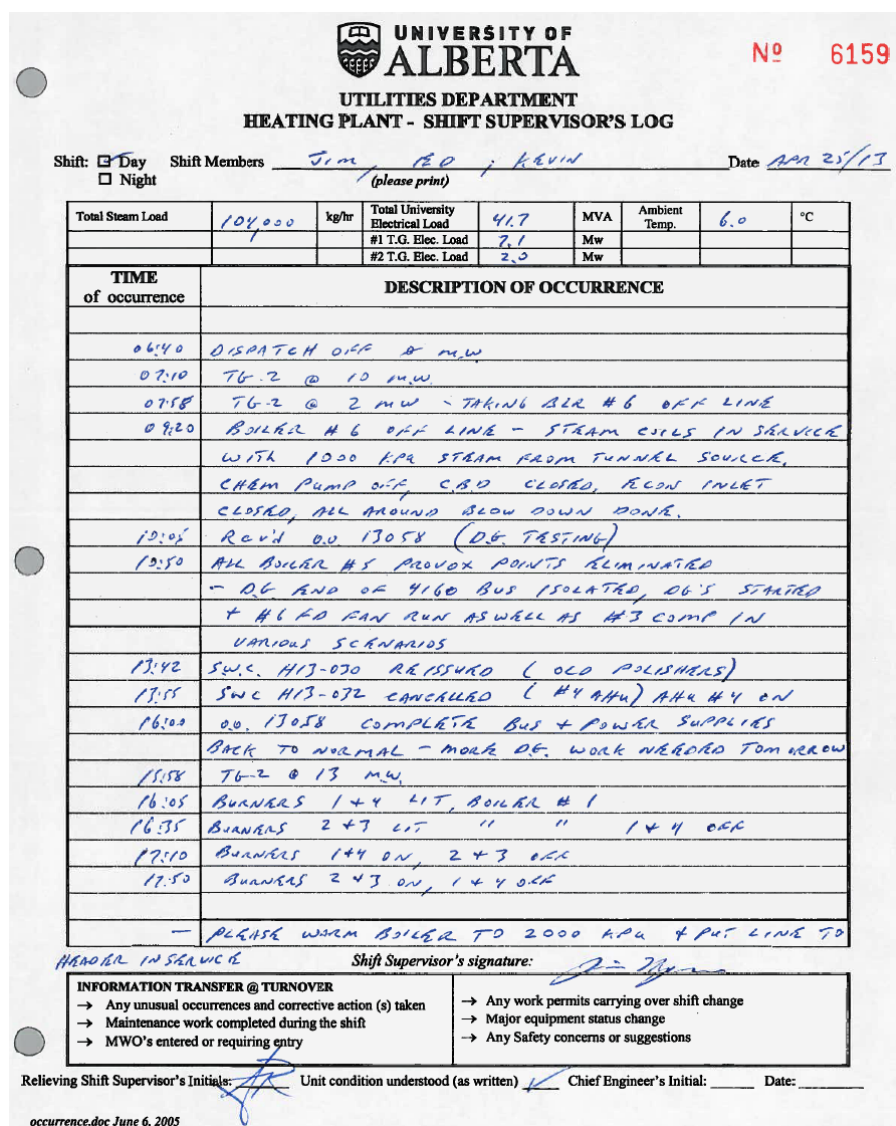 UNIVERSITY OF
ALBERTA
Nº 6159
UTILITIES DEPARTMENT
HEATING PLANT - SHIFT SUPERVISOR'S LOG
Shift: Day Shift Members JIM, ED, KEVIN Date APR 25/13
Night (please print)
Total Steam Load 104,000 kg/hr Total University Electrical Load 41.7 MVA Ambient Temp. 6.0 °C
#1 T.G. Elec. Load 7.1 Mw
#2 T.G. Elec. Load 2.0 Mw
TIME of occurrence DESCRIPTION OF OCCURRENCE
06:40 DISPATCH OFF M.W
07:10 TG-2 @ 10 M.W.
07:58 TG-2 @ 2 MW - TAKING BLR #6 OFF LINE
09:20 BOILER #6 OFF LINE - STEAM COILS IN SERVICE
WITH 1000 KPa STEAM FROM TUNNEL SOURCE,
CHEM PUMP OFF, C.B.D CLOSED, ECON INLET
CLOSED, ALL AROUND BLOW DOWN DONE.
10:05 Rcv'd O.O 13058 (D.G. TESTING)
10:50 ALL BOILER #5 PROVOX POINTS ELIMINATED
- D.G END OF 4160 BUS ISOLATED, DG'S STARTED
+ #6 FD FAN RUN AS WELL AS #3 COMP IN
VARIOUS SCENARIOS
13:42 SWC. H13-030 REISSUED (OLD POLISHERS)
13:55 SWC H13-032 CANCELLED (#4 AHU) AHU #4 ON
16:00 O.O. 13058 COMPLETE BUS + POWER SUPPLIES
BACK TO NORMAL - MORE D.G. WORK NEEDED TOMORROW
15:58 TG-2 @ 13 M.W.
16:05 BURNERS 1+4 LIT, BOILER #1
16:35 BURNERS 2+3 LIT " " 1+4 OFF
17:10 BURNERS 1+4 ON, 2+3 OFF
17:50 BURNERS 2+3 ON, 1+4 OFF
- PLEASE WARM BOILER TO 2000 KPa + PUT LINE TO
HEADER IN SERVICE Shift Supervisor's signature:
INFORMATION TRANSFER @ TURNOVER
→ Any unusual occurrences and corrective action (s) taken
→ Maintenance work completed during the shift
→ MWO's entered or requiring entry
→ Any work permits carrying over shift change
→ Major equipment status change
→ Any Safety concerns or suggestions
Relieving Shift Supervisor's Initials: Unit condition understood (as written) Chief Engineer's Initial: Date:
occurrence.doc June 6, 2005